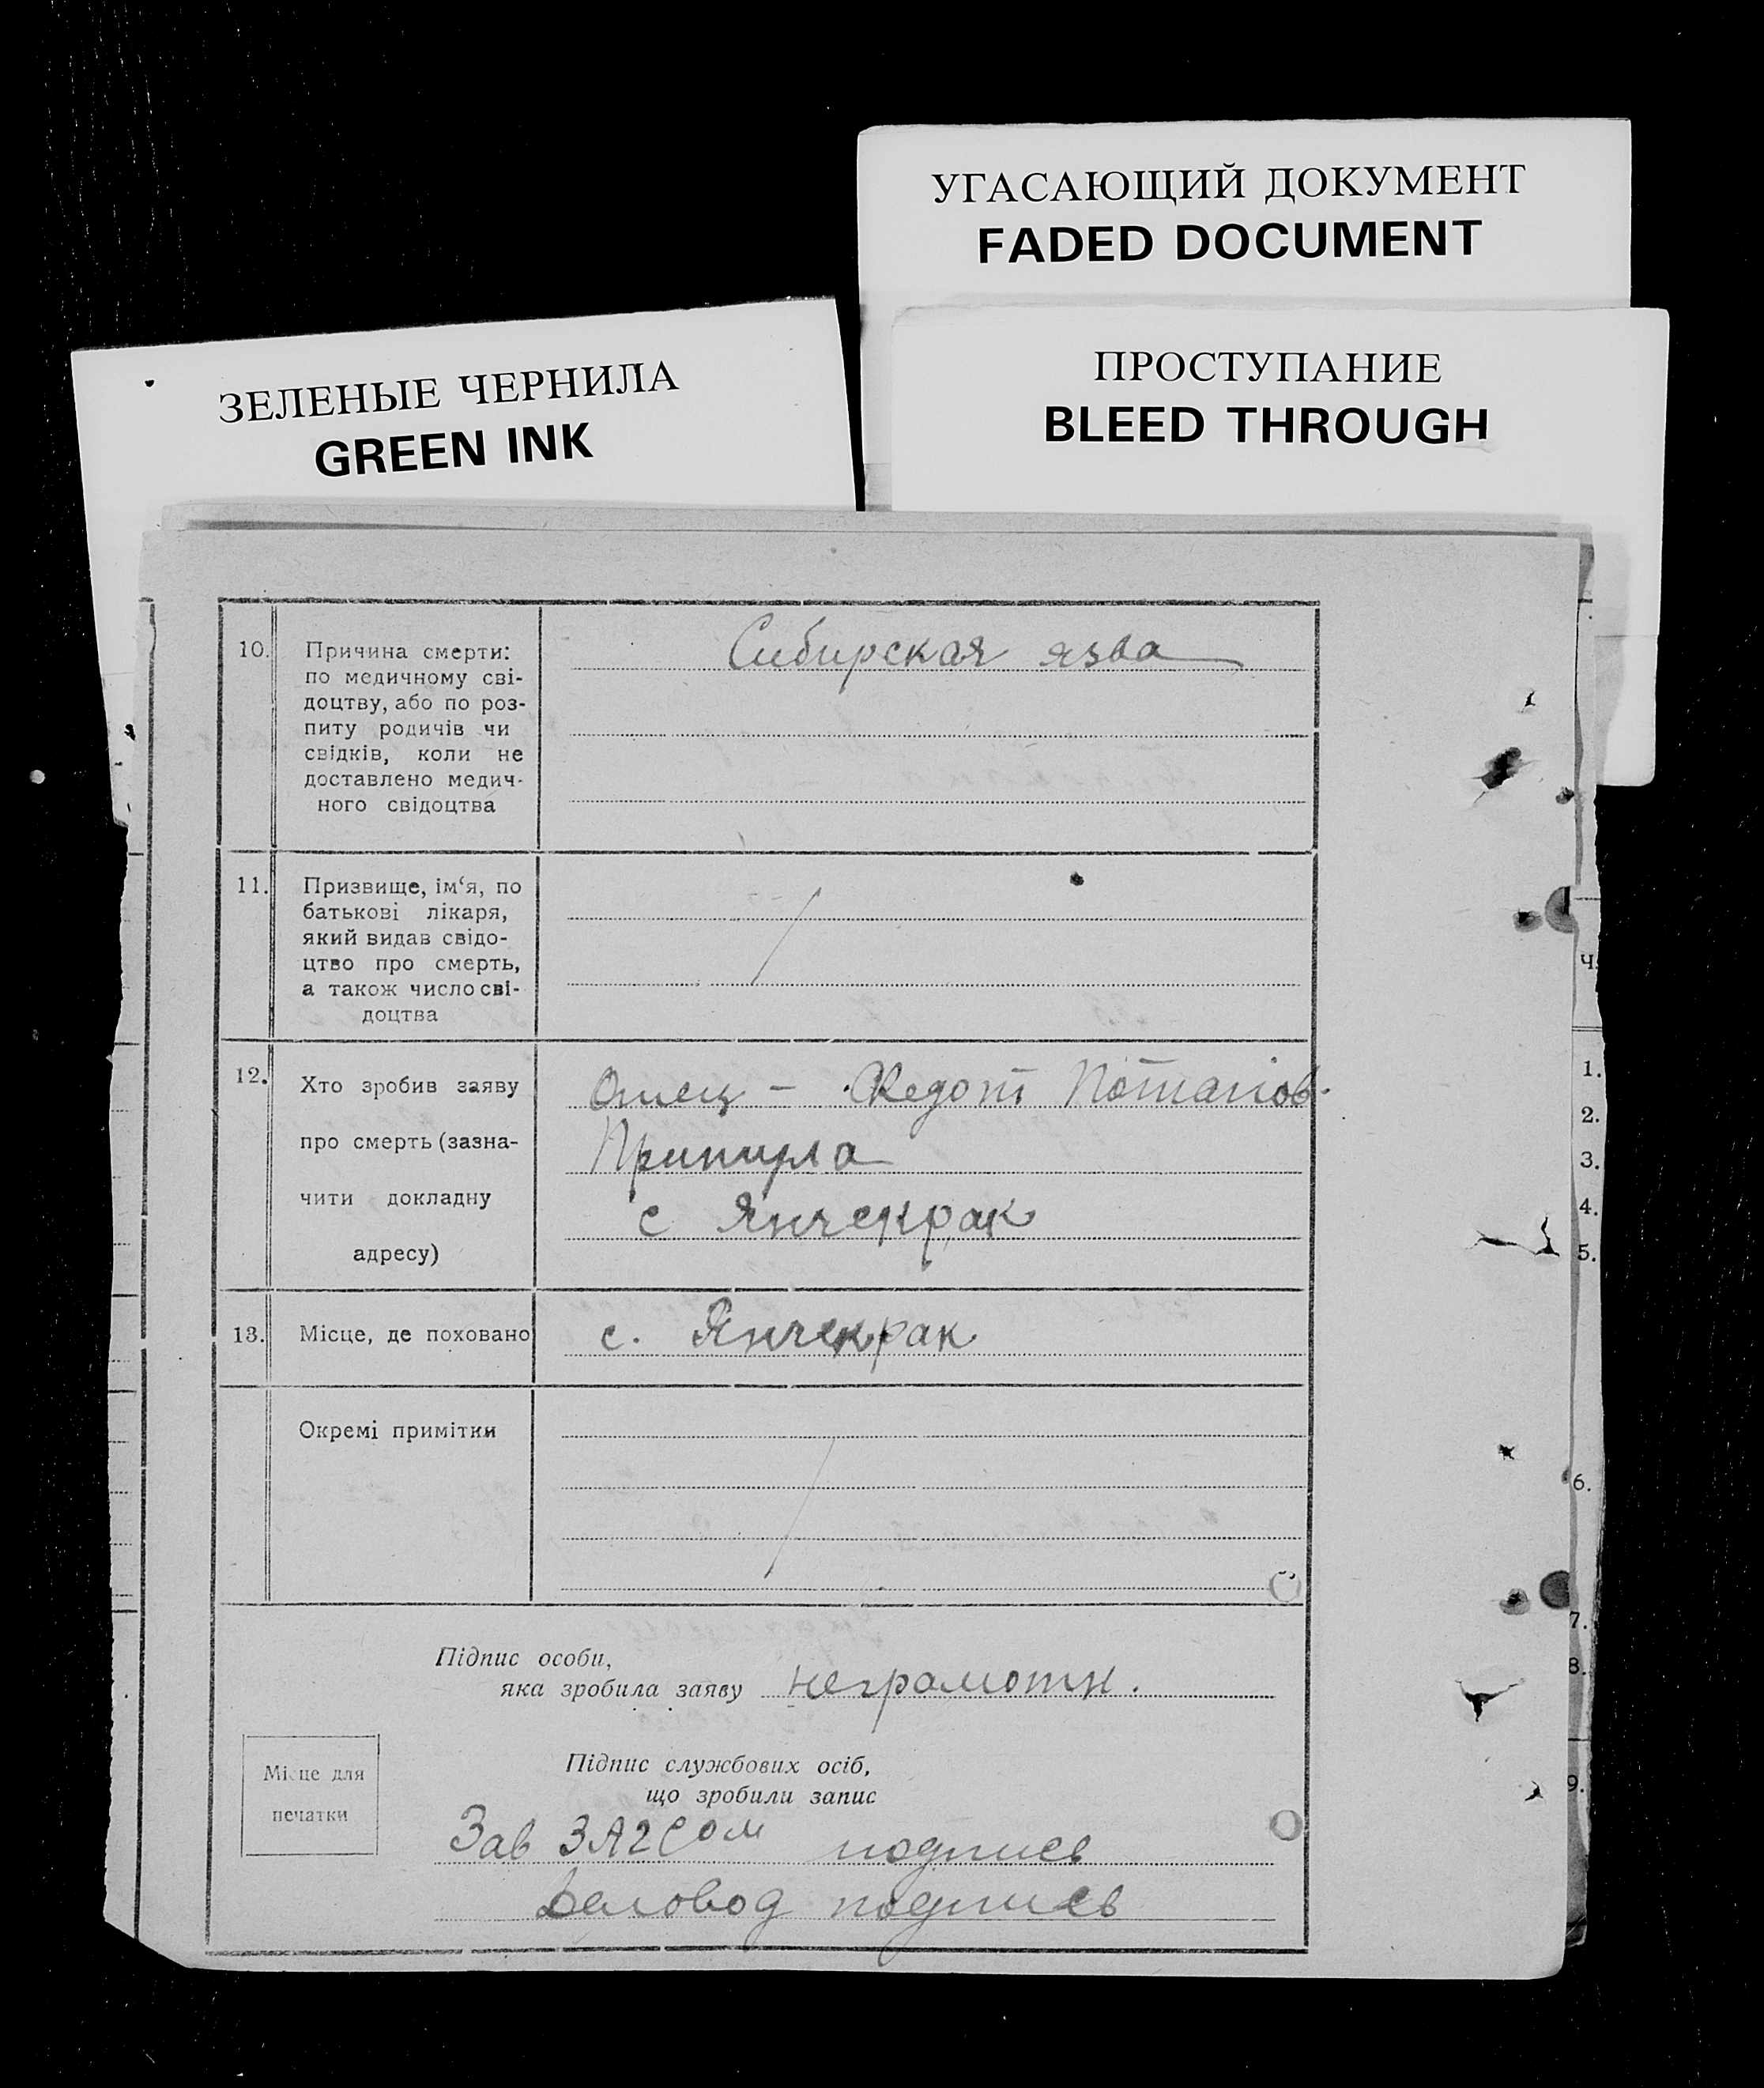 УГАСАЮЩИЙ ДОКУМЕНТ
FADED DOCUMENT
ЗЕЛЕНЫЕ ЧЕРНИЛА
GREEN INK
ПРОСТУПАНИЕ
BLEED THROUGH
10. Причина смерти:
по медичному сві-
доцтву, або по роз-
питу родичів чи
свідків, коли не
доставлено медич-
ного свідоцтва
Сибирская язва
11. Призвище, ім‘я, по
батькові лікаря,
який видав свідо-
цтво про смерть,
а також число сві-
доцтва
12. Хто зробив заяву
про смерть (зазна-
чити докладну
адресу)
Отец – Федот Потапов.
с Янчекрак
13. Місце, де поховано
с. Янчекрак
Окремі примітки
Підпис особи,
яка зробила заяву неграмотн.
Місце для
печатки
Підпис службових осіб,
що зробили запис
Зав ЗАГСом подпись
Деловод подпись
ч.
1.
2.
3.
4.
5.
6.
7.
8.
9.